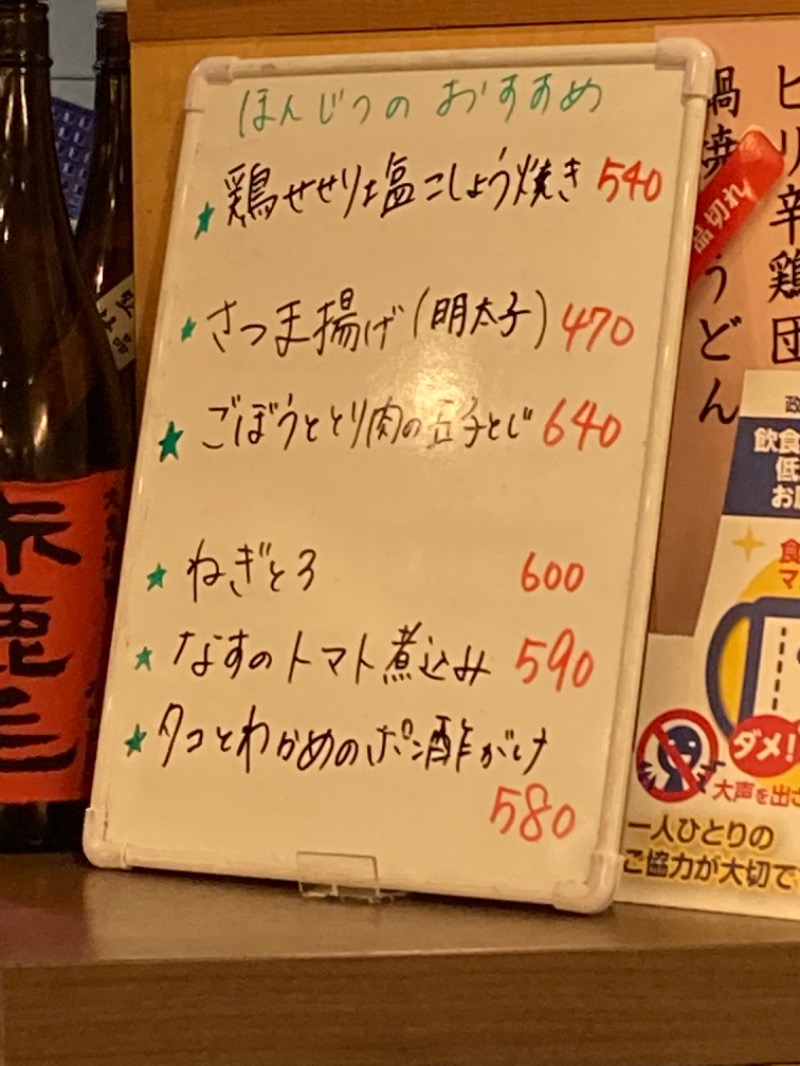 ほんじつの おすすめ
★鶏せせり塩こしょう焼き 540
★さつま揚げ(明太子) 470
★ごぼうととり肉の玉子とじ 640
★ねぎとろ 600
★なすのトマト煮込み 590
★タコとわかめのポン酢がけ
580
ピリ辛鶏団
鍋焼うどん
品切れ
飲食
低
お
食
マ
ダメ!
大声を出さ
一人ひとりの
ご協力が大切で
赤鹿毛